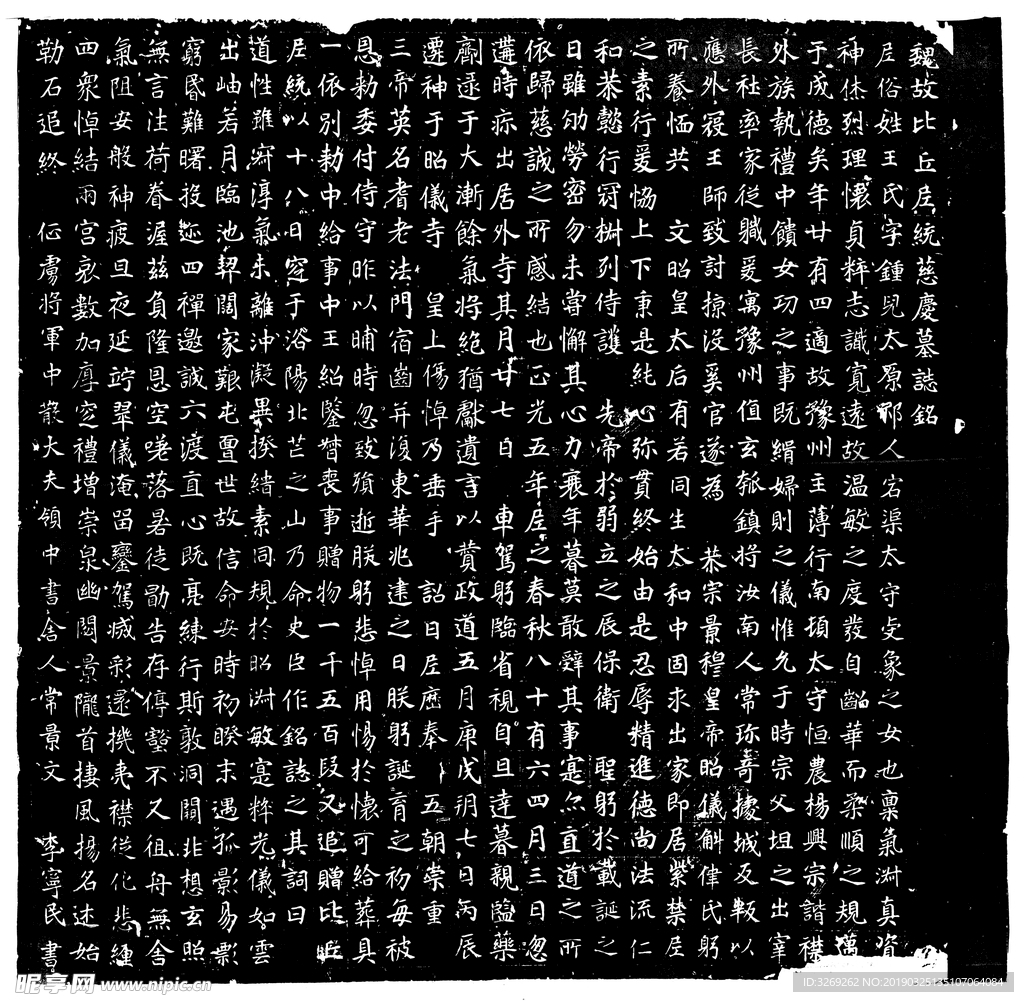 魏故比丘尼統慈慶墓誌銘
尼俗姓王氏字鍾兒太原郡人宕渠太守虔象之女也稟氣淑真資
神休烈理懷貞粹志識寬遠故溫敏之度發自齠華而柔順之規邁
于成德矣年廿有四適故豫州主薄行南頓太守恒農楊興宗諧襟
外族執禮中饋女功之事既緝婦則之儀惟允于時宗父坦之出宰
長社率家從職爰寓豫州值玄瓠鎮將汝南人常珍奇據城反叛以
應外寇王師致討掠沒奚官遂為 恭宗景穆皇帝昭儀斛律氏躬
所養恤共 文昭皇太后有若同生太和中固求出家即居紫禁尼
之素行爰協上下秉是純心弥貫終始由是忍辱精進德尚法流仁
和恭懿行冠椒列侍護 先帝於弱立之辰保衛 聖躬於載誕之
日雖劬勞密勿未嘗懈其心力衰年暮莫敢辤其事寔亦直道之所
依歸慈誠之所感結也正光五年尼之春秋八十有六四月三日忽
遘時疹出居外寺其月廿七日 車駕躬臨省視自旦達暮親監藥
劑逯于大漸餘氣將絕猶獻遺言以贊政道五月庚戌朔七日丙辰
遷神于昭儀寺 皇上傷悼乃垂手 詔曰尼歷奉 五朝崇重
三帝英名耆老法門宿齒并復東華兆建之日朕躬誕育之初每被
恩勑委付侍守昨以晡時忽致殞逝朕躬悲悼用惕於懷可給葬具
一依別勑中給事中王紹鑒督喪事贈物一千五百段又追贈比丘
尼統以十八日窆于洛陽北芒之山乃命史臣作銘誌之其詞曰
道性雖寂淳氣未離沖凝異揆緇素同規於昭淑敏寔粹光儀如雲
出岫若月臨池契闊家艱屯亶世故信命安時初睽末遇孤影易彫
窮昬難曙投迹四禪邀誠六渡直心既亮練行斯敦洞闢非想玄照
無言注荷眷渥茲負隆恩空嗟落晷徒勖告存停壑不久徂舟無舍
氣阻安般神疲旦夜延竚翠儀淹留鑾駕滅彩還機夷襟從化悲纏
四衆悼結兩宮哀數加厚窆禮增崇泉幽閟景隴首棲風揚名述始
勒石追終 征虜將軍中散大夫領中書舍人常景文 李寧民書
昵享网 www.nipic.cn
ID:3269262 NO:20190325135107064084